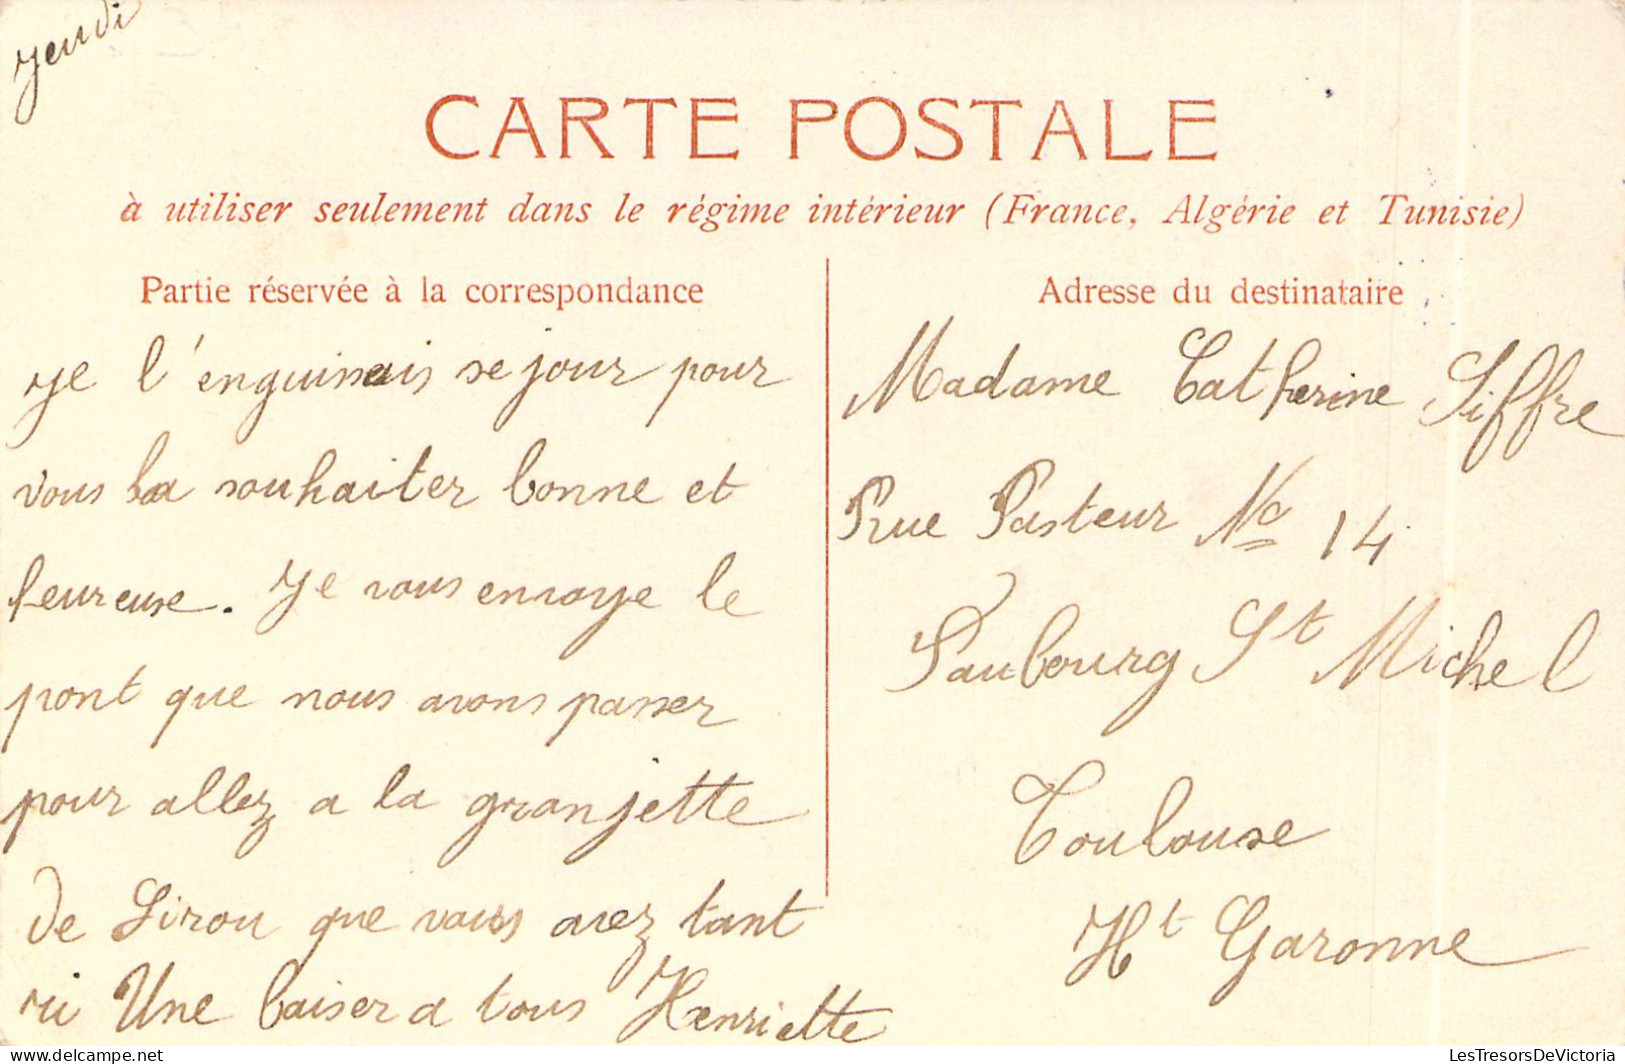 Jeudi
CARTE POSTALE
à utiliser seulement dans le régime intérieur (France, Algérie et Tunisie)
Partie réservée à la correspondance
je l'enguissais se jour pour
vous la souhaiter bonne et
heureuse. Je vous envoye le
pont que nous avons passer
pour allez a la granjette
de Lirou que vous avez tant
ri Une baiser a tous Henriette
Adresse du destinataire
Madame Catherine Siffre
Rue Pasteur No 14
Faubourg St Michel
Toulouse
Ht Garonne
LesTresorsDeVictoria